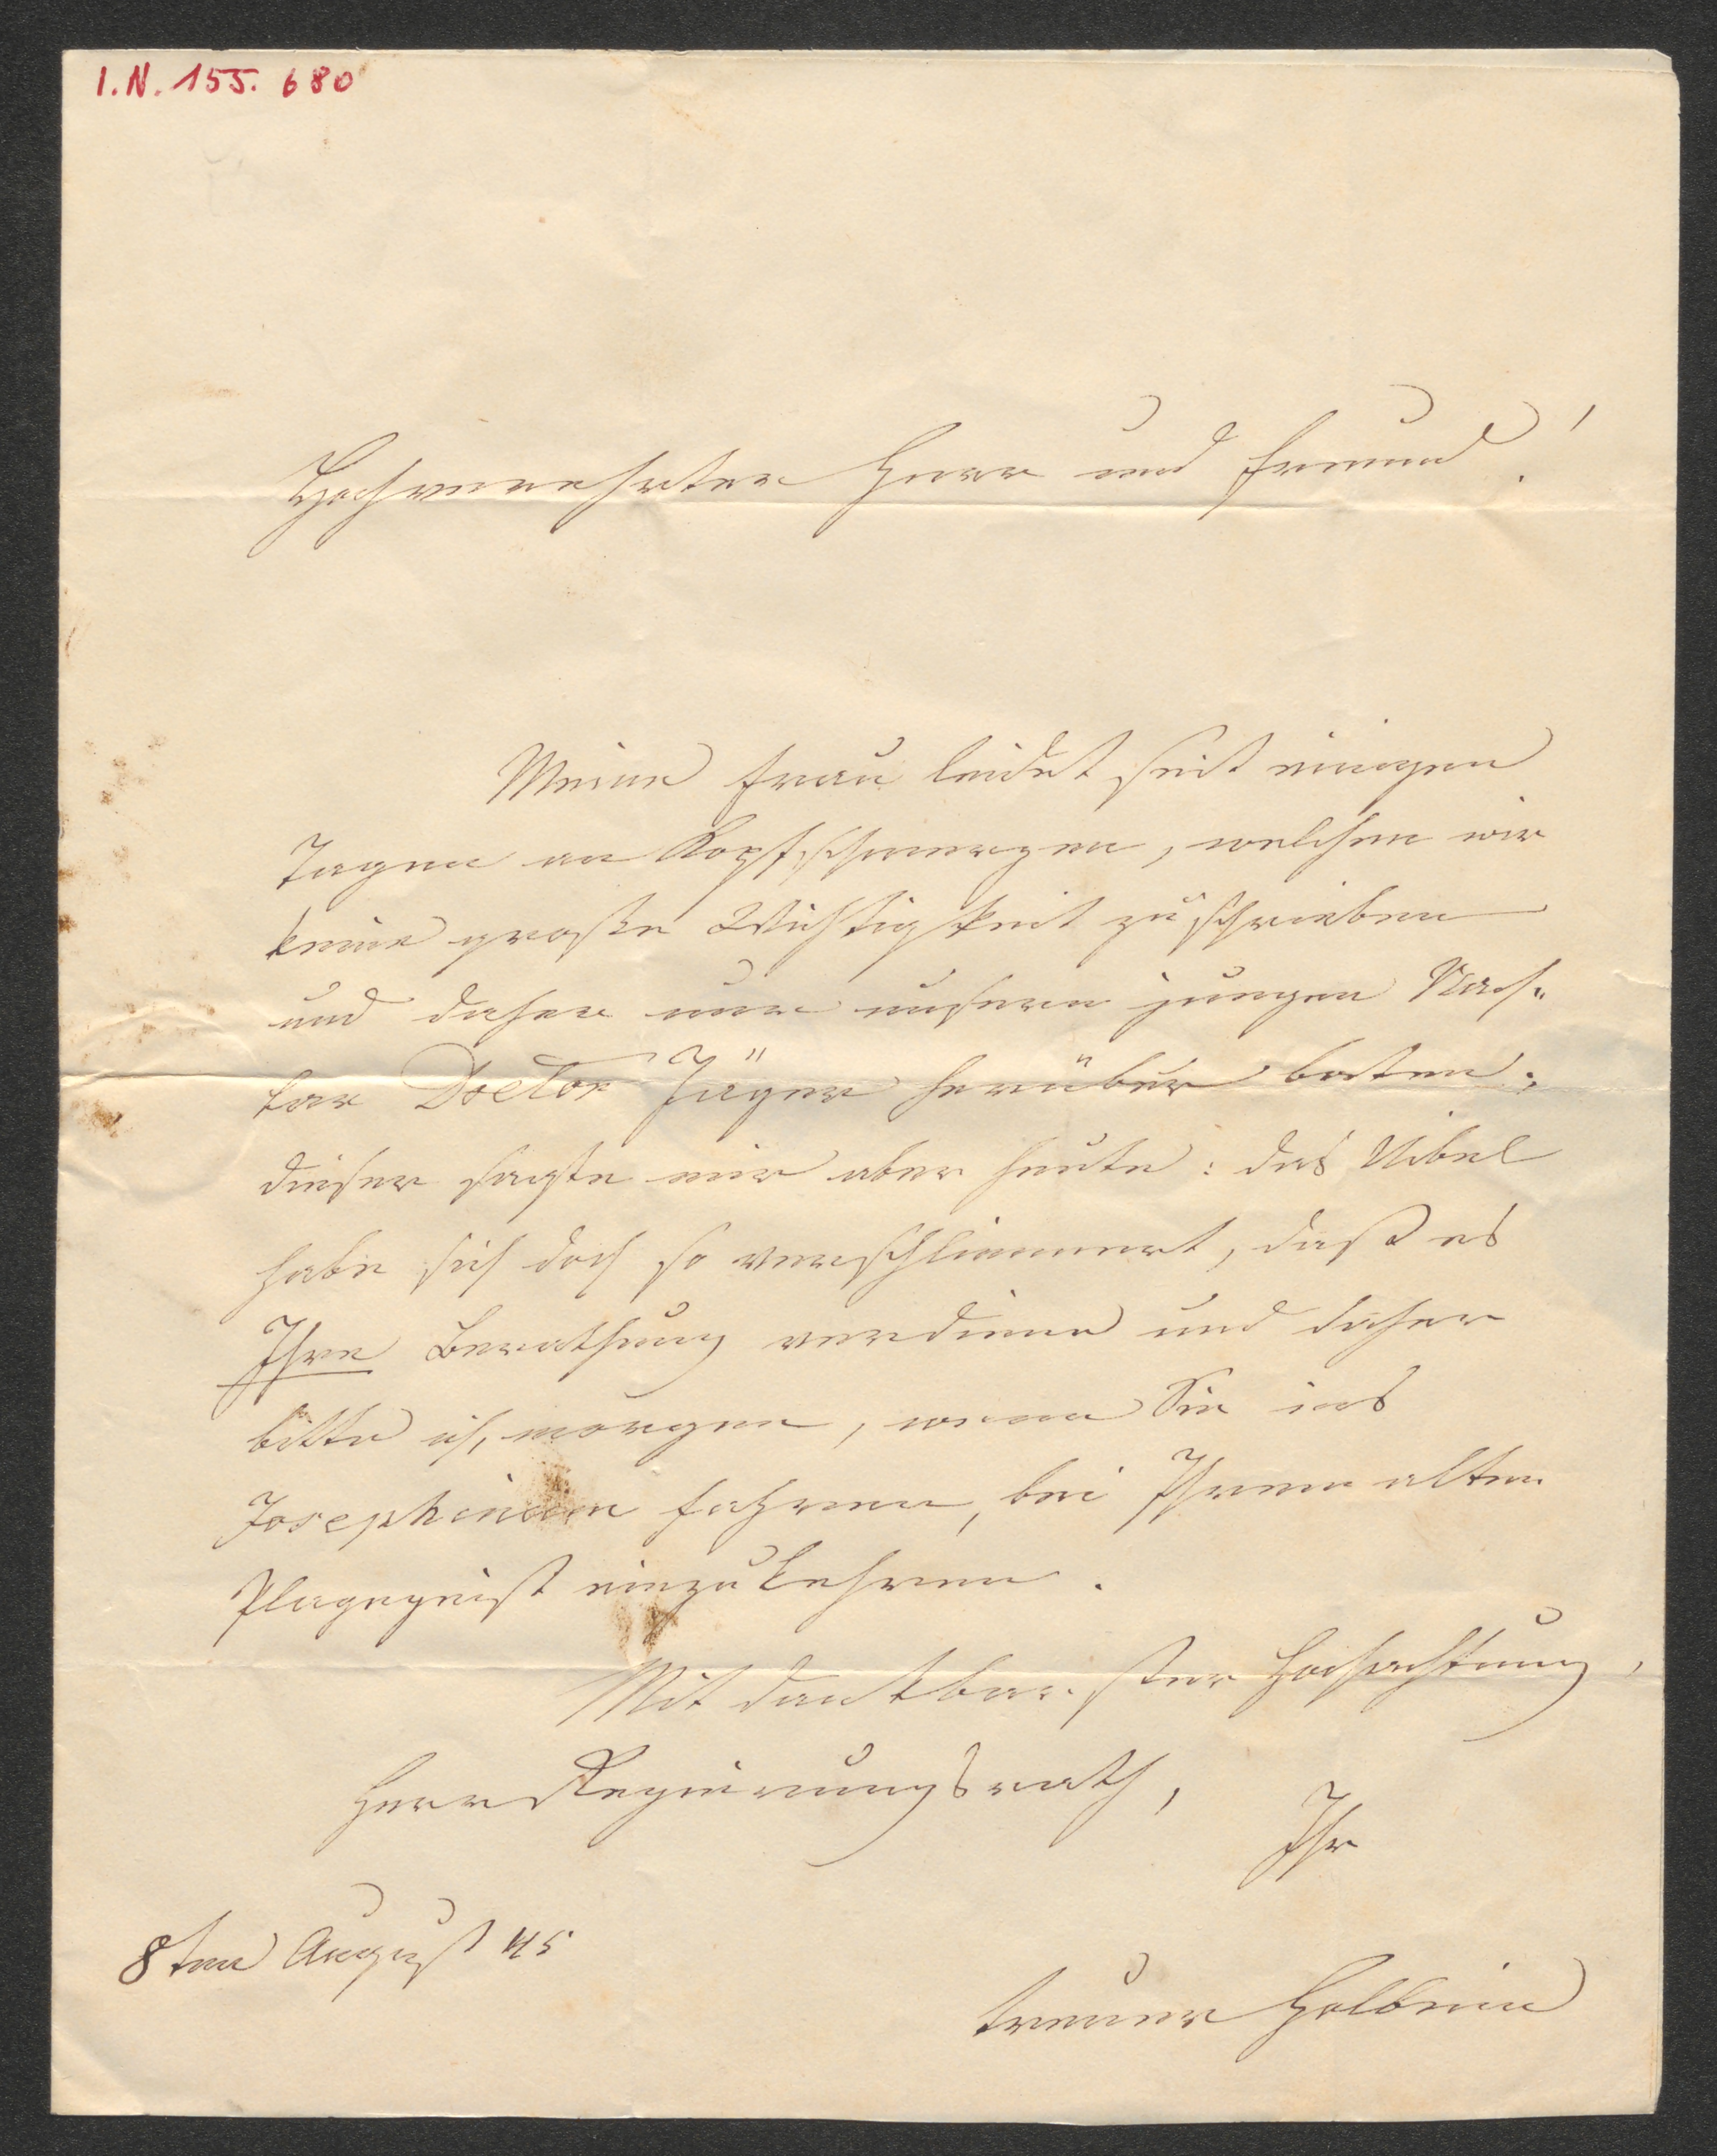 I.N. 155.680
Hochverehrter Herr und Freund!
Meine Frau leidet seit einigen
Tagen an Kopfschmerzen, welchen wir
keine große Wichtigkeit zuschrieben
und daher nur unsern jungen Nach„
bar Doctor Jäger herüber baten;
dieser sagte mir aber heute: das Uibel
habe sich doch so verschlimmert, daß es
Ihre Berathung verdiene und daher
bitte ich, morgen, wenn Sie ins
Josephinum fahren, bei Ihrem alten
Plagegeist einzukehren.
Mit dankbarster Hochachtung,
Herr Regierungsrath,
Ihr
8ten August 45
treuer Holbein